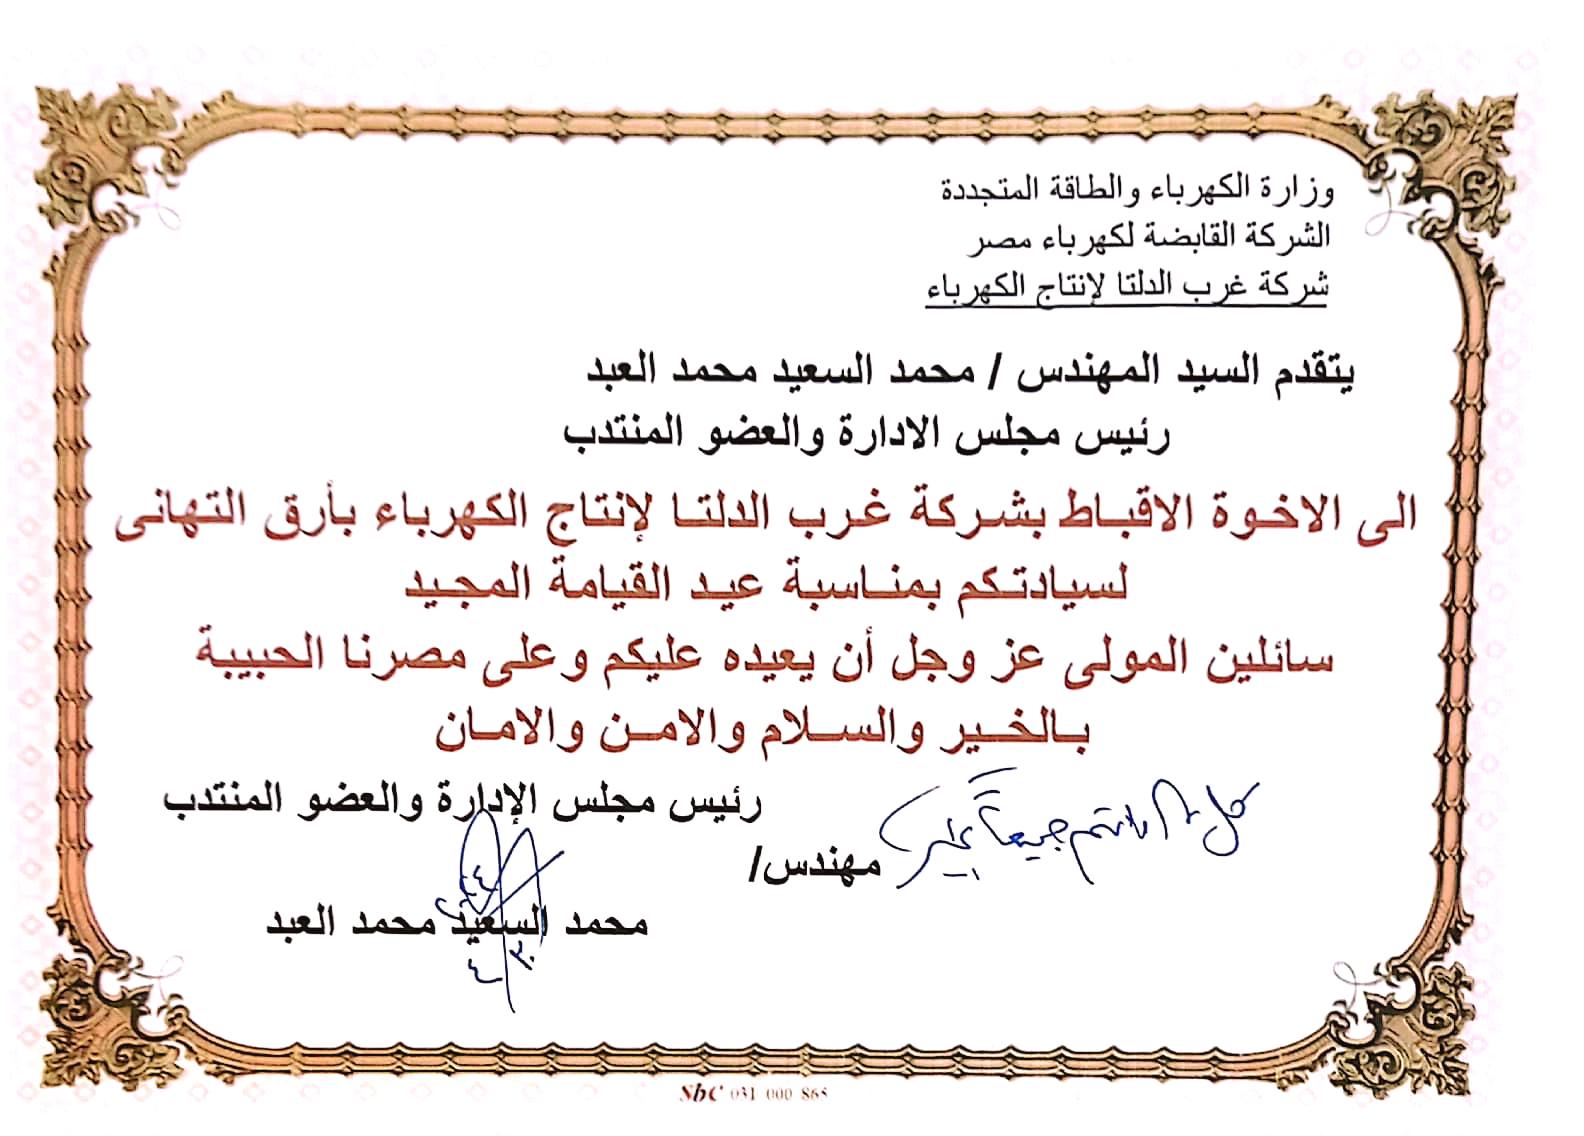 وزارة الكهرباء والطاقة المتجددة
الشركة القابضة لكهرباء مصر
شركة غرب الدلتا لإنتاج الكهرباء
يتقدم السيد المهندس / محمد السعيد محمد العبد
رئيس مجلس الادارة والعضو المنتدب
الى الاخوة الاقباط بشركة غرب الدلتا لإنتاج الكهرباء بأرق التهانى
لسيادتكم بمناسبة عيد القيامة المجيد
سائلين المولى عز وجل أن يعيده عليكم وعلى مصرنا الحبيبة
بالخير والسلام والامن والامان
رئيس مجلس الإدارة والعضو المنتدب
كل وأنتم جميعاً بخير
مهندس/
محمد السعيد محمد العبد
٣٠
٤
SbC 031 000 865